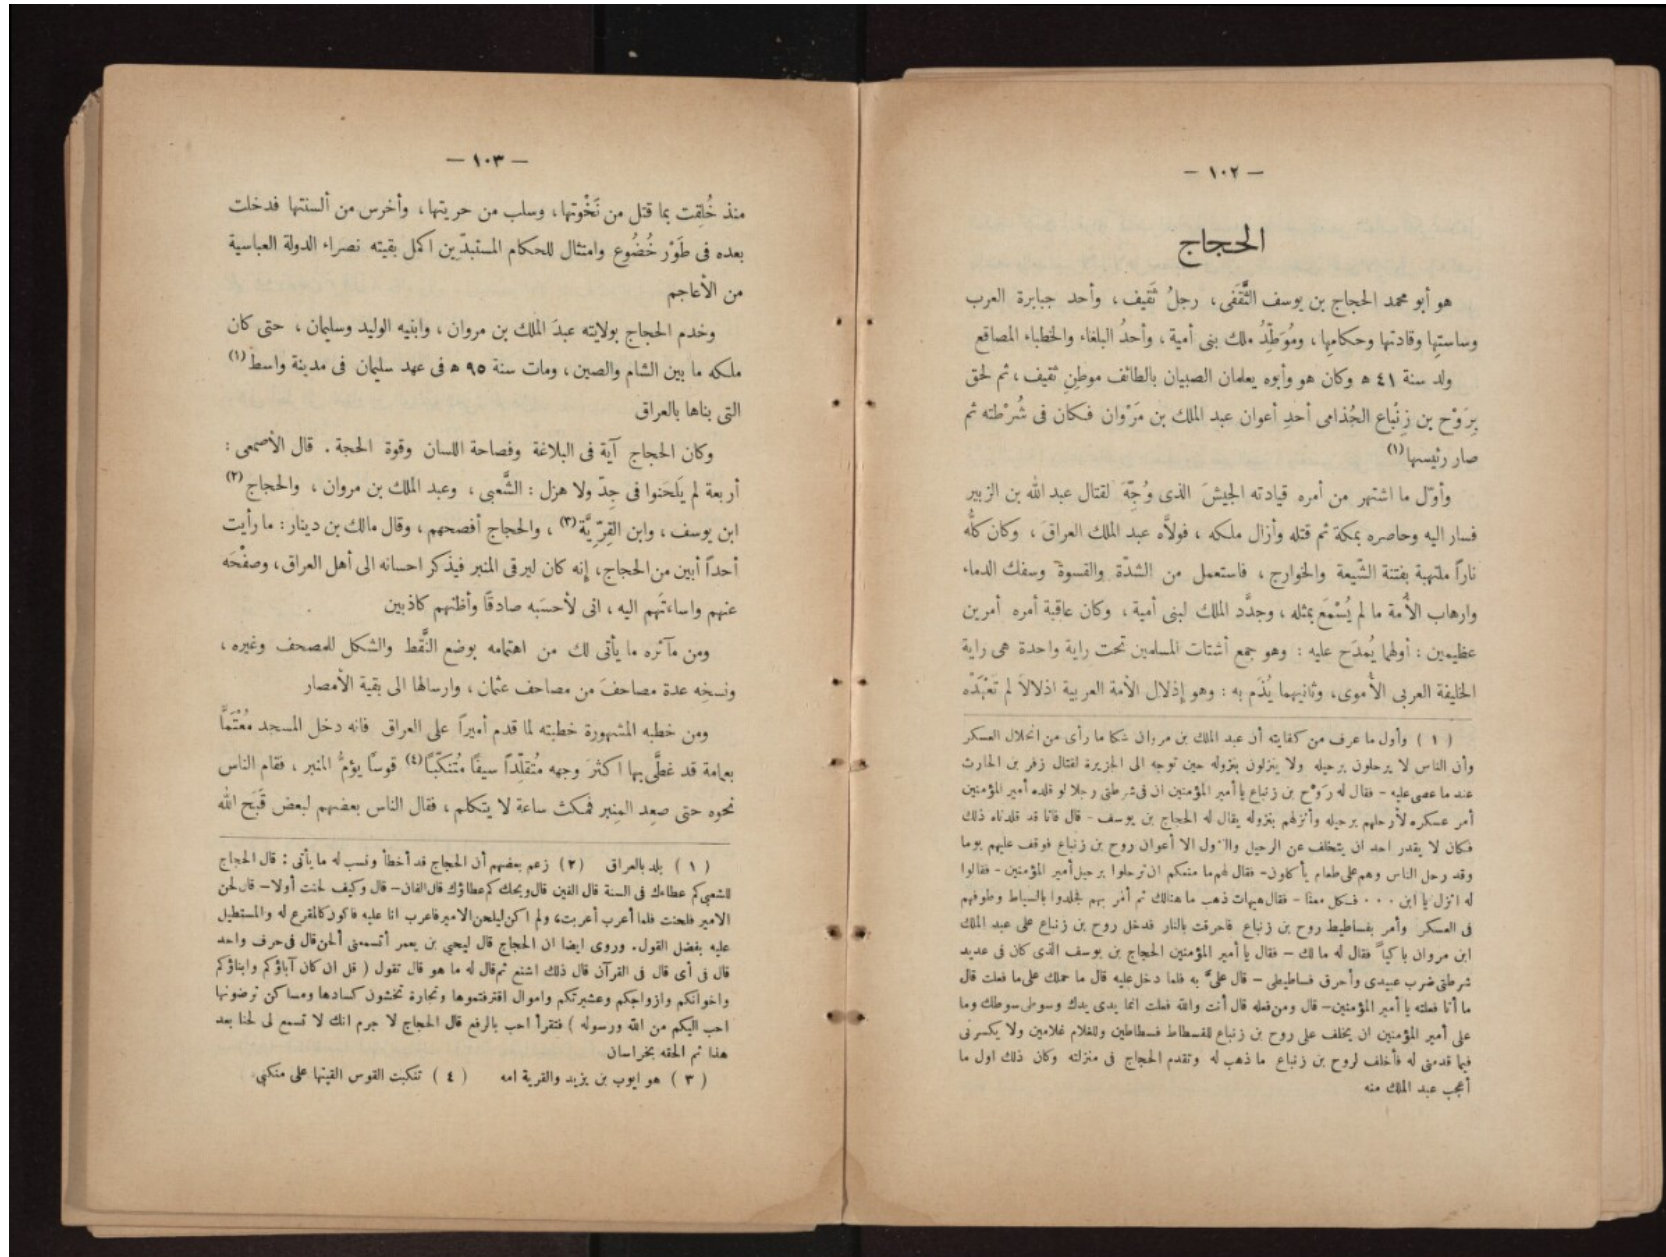 — ١٠٢ —
الحجاج
هو أبو محمد الحجاج بن يوسف الثَّقَفى، رجلُ ثَقيف، وأحد جبابرة العرب
وساستِها وقادتها وحكامِها، ومُوَطِّدُ ملك بنى أمية، وأحدُ البلغاء والخطباء المصاقع
ولد سنة ٤١ ھ وكان هو وأبوه يعلمان الصبيان بالطائف موطِنِ ثقيف، ثم لحق
بِرَوْح بن زِنْباع الجُذامى أحدِ أعوان عبد الملك بن مَرْوان فكان فى شُرْطته ثم
صار رئيسها (١)
وأوّل ما اشتهر من أمره قيادته الجيشَ الذى وُجِّهَ لقتال عبد الله بن الزبير
فسار اليه وحاصره بمكة ثم قتله وأزال ملكه، فولاَّه عبد الملك العراقَ، وكان كلُّه
ناراً ملتهبة بفتنة الشّيعة والخوارج، فاستعمل من الشدّة والقسوة وسفك الدماء
وارهاب الأمة ما لم يُسْمَع بمثله، وجدَّد الملك لبنى أمية، وكان عاقبة أمره أمرين
عظيمين : أولهما يُمدَح عليه : وهو جمع أشتات المسلمين تحت راية واحدة هى راية
الخليفة العربى الأموى، وثانيهما يُذَم به : وهو إذلال الأمة العربية اذلالاً لم تَعْهَدْه
( ١ ) وأول ما عرف من كفايته أن عبد الملك بن مروان شكا ما رأى من انحلال العسكر
وأن الناس لا يرحلون برحيله ولا ينزلون بنزوله حين توجه الى الجزيرة لقتال زفر بن الحارث
عند ما عصى عليه – فقال له رَوْح بن زنباع يا أمير المؤمنين ان فى شرطتى رجلا لو قلده أمير المؤمنين
أمر عسكره لأرحلهم برحيله وأنزلهم بنزوله يقال له الحجاج بن يوسف – قال فانا قد قلدناه ذلك
فكان لا يقدر احد ان يتخلف عن الرحيل والنزول الا أعوان روح بن زنباع فوقف عليهم يوما
وقد رحل الناس وهم على طعام يأكلون– فقال لهم ما منعكم ان ترحلوا برحيل أمير المؤمنين – فقالوا
له انزل يا ابن ٠٠٠ فكل معنا – فقال هيهات ذهب ما هنالك ثم أمر بهم فجلدوا بالسياط وطوفهم
فى العسكر وأمر بفساطيط روح بن زنباع فاحرقت بالنار فدخل روح بن زنباع على عبد الملك
ابن مروان باكياً فقال له ما لك – فقال يا أمير المؤمنين الحجاج بن يوسف الذى كان فى عديد
شرطتى ضرب عبيدى وأحرق فساطيطى – قال علىَّ به فلما دخل عليه قال ما حملك على ما فعلت قال
ما أنا فعلته يا أمير المؤمنين– قال ومن فعله قال أنت والله فعلت انما يدى يدك وسوطى سوطك وما
على أمير المؤمنين ان يخلف على روح بن زنباع للفسطاط فسطاطين وللغلام غلامين ولا يكسرنى
فيما قدمنى له فأخلف لروح بن زنباع ما ذهب له وتقدم الحجاج فى منزلته وكان ذلك اول ما
أعجب عبد الملك منه
— ١٠٣ —
منذ خُلِقت بما قتل من نَخْوتها، وسلب من حريتها، وأخرس من ألسنتها فدخلت
بعده فى طَوْر خُضُوع وامتثال للحكام المستبدّين اكمل بقيته نصراء الدولة العباسية
من الأعاجم
وخدم الحجاج بولايته عبدَ الملك بن مروان، وابنيه الوليد وسليمان، حتى كان
ملكه ما بين الشام والصين، ومات سنة ٩٥ ھ فى عهد سليمان فى مدينة واسط (١)
التى بناها بالعراق
وكان الحجاج آية فى البلاغة وفصاحة اللسان وقوة الحجة . قال الأصمعى :
أربعة لم يَلحَنوا فى جِدّ ولا هزل : الشَّعبى، وعبد الملك بن مروان، والحجاج (٢)
ابن يوسف، وابن القِرِّيَّة (٣)، والحجاج أفصحهم، وقال مالك بن دينار : ما رأيت
أحداً أبين من الحجاج، إنه كان ليرقى المنبر فيذكر احسانه الى أهل العراق، وصفْحَه
عنهم واساءتَهم اليه، انى لأحسَبه صادقًا وأظنهم كاذبين
ومن مآثره ما يأتى لك من اهتمامه بوضع النَّقط والشكل للمصحف وغيره،
ونسخِه عدة مصاحفَ من مصاحف عثمان، وارسالها الى بقية الأمصار
ومن خطبه المشهورة خطبته لما قدم أميراً على العراق فانه دخل المسجد مُعْتَمًّا
بعمامة قد غطَّى بها اكثرَ وجهه مُتقلّداً سيفًا مُتنكّبًا (٤) قوسًا يؤمُّ المنبر، فقام الناس
نحوه حتى صعِد المِنبر فمكث ساعة لا يتكلم، فقال الناس بعضهم لبعض قَبَح الله
( ١ ) بلد بالعراق ( ٢ ) زعم بعضهم أن الحجاج قد أخطأ ونسب له ما يأتى : قال الحجاج
للشعبى كم عطاءك فى السنة قال الفين قال ويحك كم عطاؤك قال الفان– قال وكيف لحنت أولا– قال لحن
الامير فلحنت فلما أعرب أعربت، ولم اكن ليلحن الامير فاعرب انا عليه فاكون كالمقرع له والمستطيل
عليه بفضل القول. وروى ايضا ان الحجاج قال ليحيى بن يعمر أتسمعنى ألحن قال فى حرف واحد
قال فى أى قال فى القرآن قال ذلك اشنع ثم قال له ما هو قال تقول ( قل ان كان آباؤكم وابناؤكم
واخوانكم وازواجكم وعشيرتكم واموال اقترفتموها وتجارة تخشون كسادها ومساكن ترضونها
احب اليكم من الله ورسوله ) فتقرأ احب بالرفع قال الحجاج لا جرم انك لا تسمع لى لحنا بعد
هذا ثم الحقه بخراسان
( ٣ ) هو ايوب بن يزيد والقرية امه ( ٤ ) تنكبت القوس القيتها على منكبى